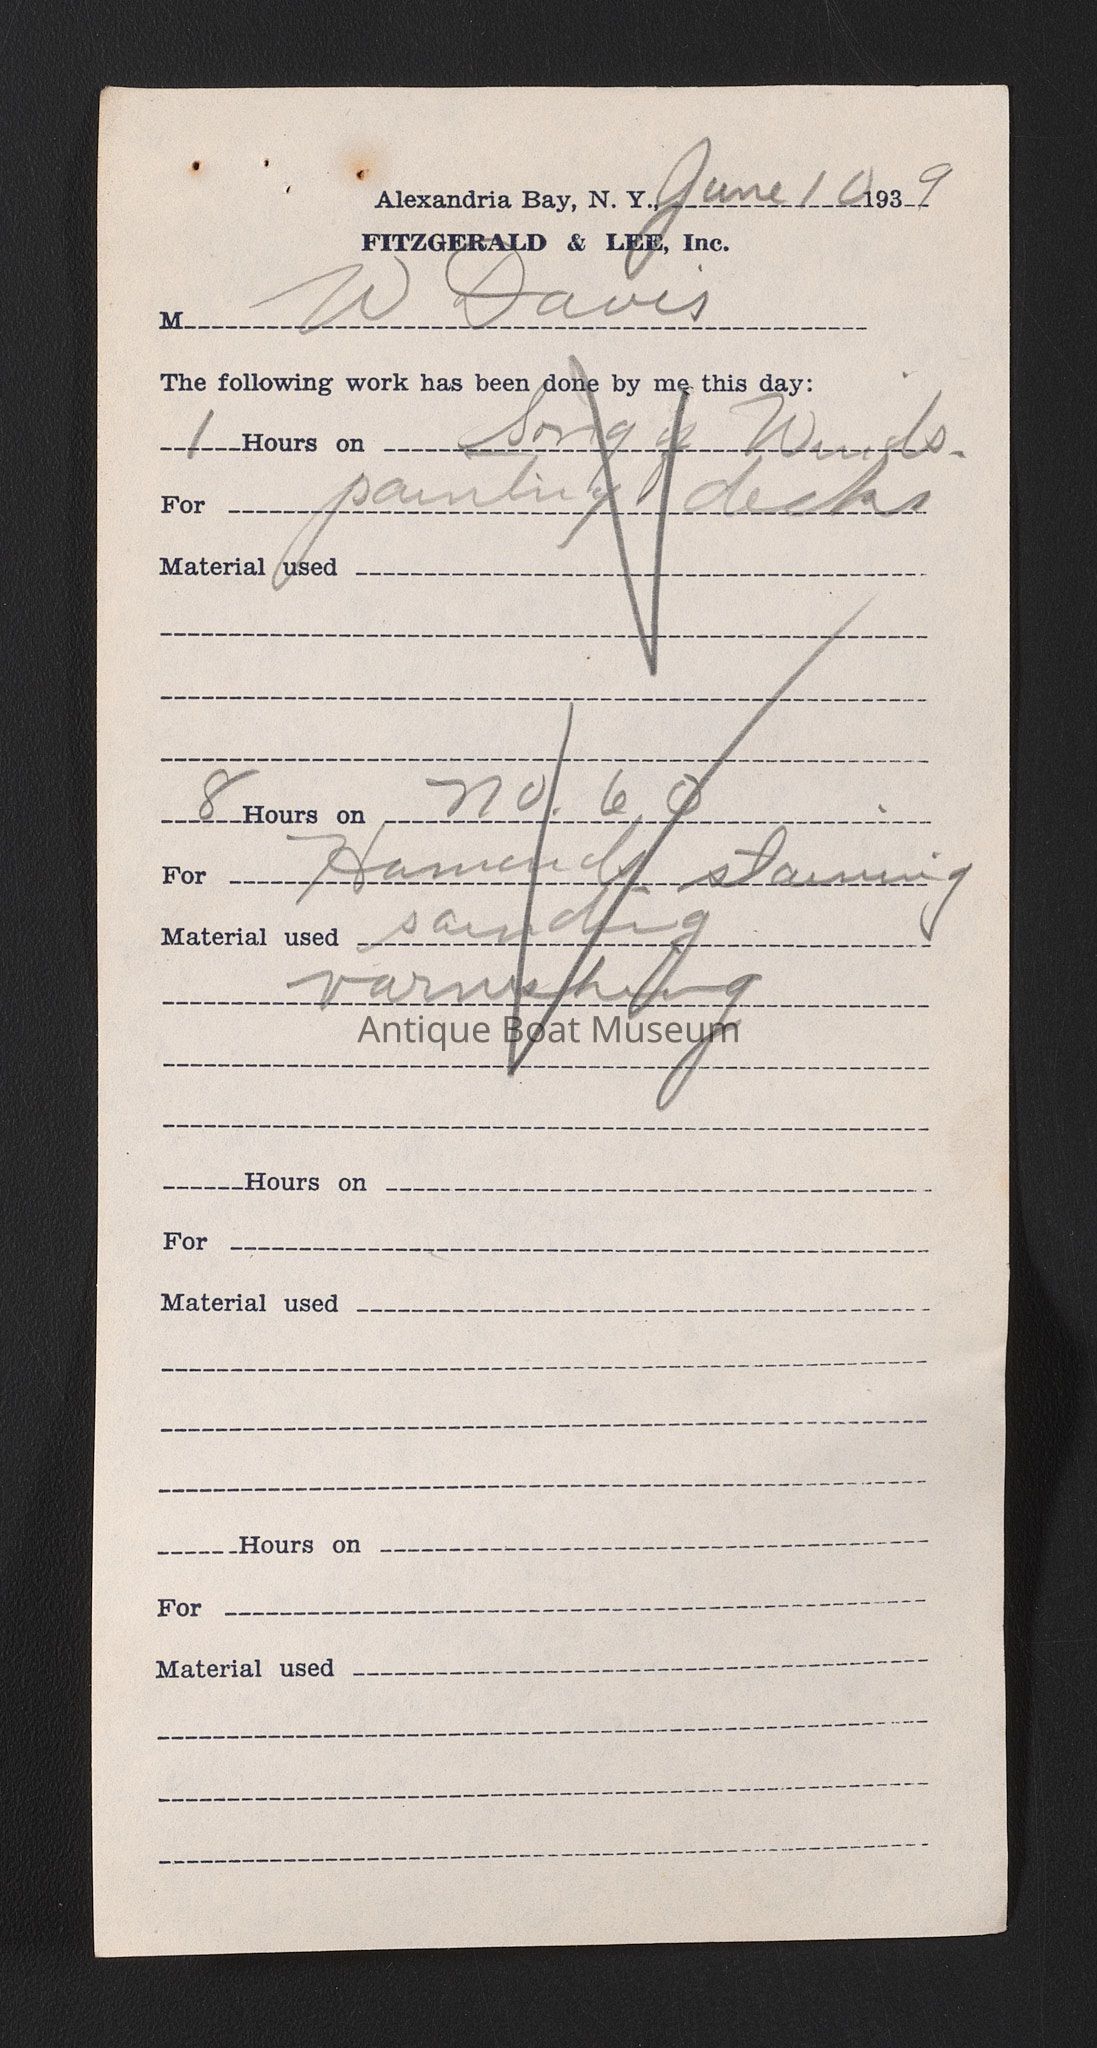 Alexandria Bay, N. Y., June 10 1939
FITZGERALD & LEE, Inc.
M W Davis
The following work has been done by me this day:
1 Hours on Song Winds.
For painting decks
Material used
8 Hours on No. 60
For staining
Material used sanding
varnishing
Antique Boat Museum
Hours on
For
Material used
Hours on
For
Material used